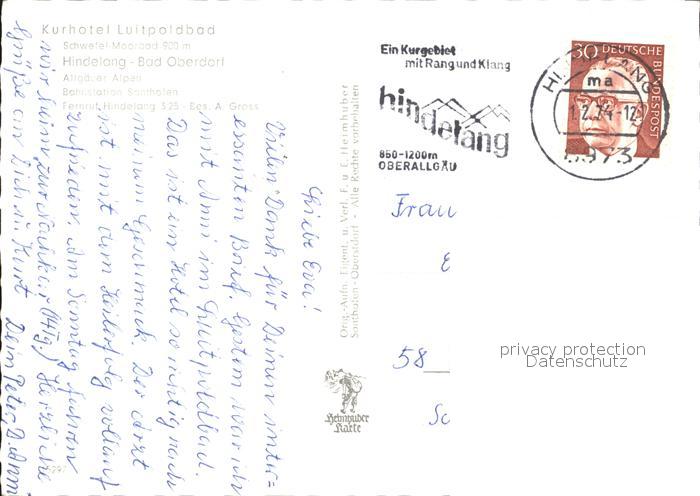 Kurhotel Luitpoldbad
Schwefel-Moorbad 900 m
Hindelang - Bad Oberdorf
Allgäuer Alpen
Bahnstation Sonthofen
Fernruf Hindelang 325 - Bes. A. Gross
Liebe Eva!
Vielen Dank für Deinen inter=
essanten Brief. Gestern war ich
mit Anni im Luitpoldbad.
Das ist ein Hotel so richtig nach
meinem Geschmack. Der Arzt
ist mit dem Heilerfolg vollauf
zufrieden. Am Sonntag fahren
wir heim zur Herzliche
Grüße an Dich u. Kurt Dein Peter
5297
Orig.-Aufn. Eigent. u. Verl. F. u. E. Heimhuber
Sonthofen-Oberstdorf - Alle Rechte vorbehalten
Heimhuber
Karte
Ein Kurgebiet
mit Rang und Klang
hindelang
850-1200m
OBERALLGÄU
30 DEUTSCHE BUNDESPOST
HINDELANG
ma
1.2.74-12
8973
Frau
E
58
Sc
privacy protection
Datenschutz